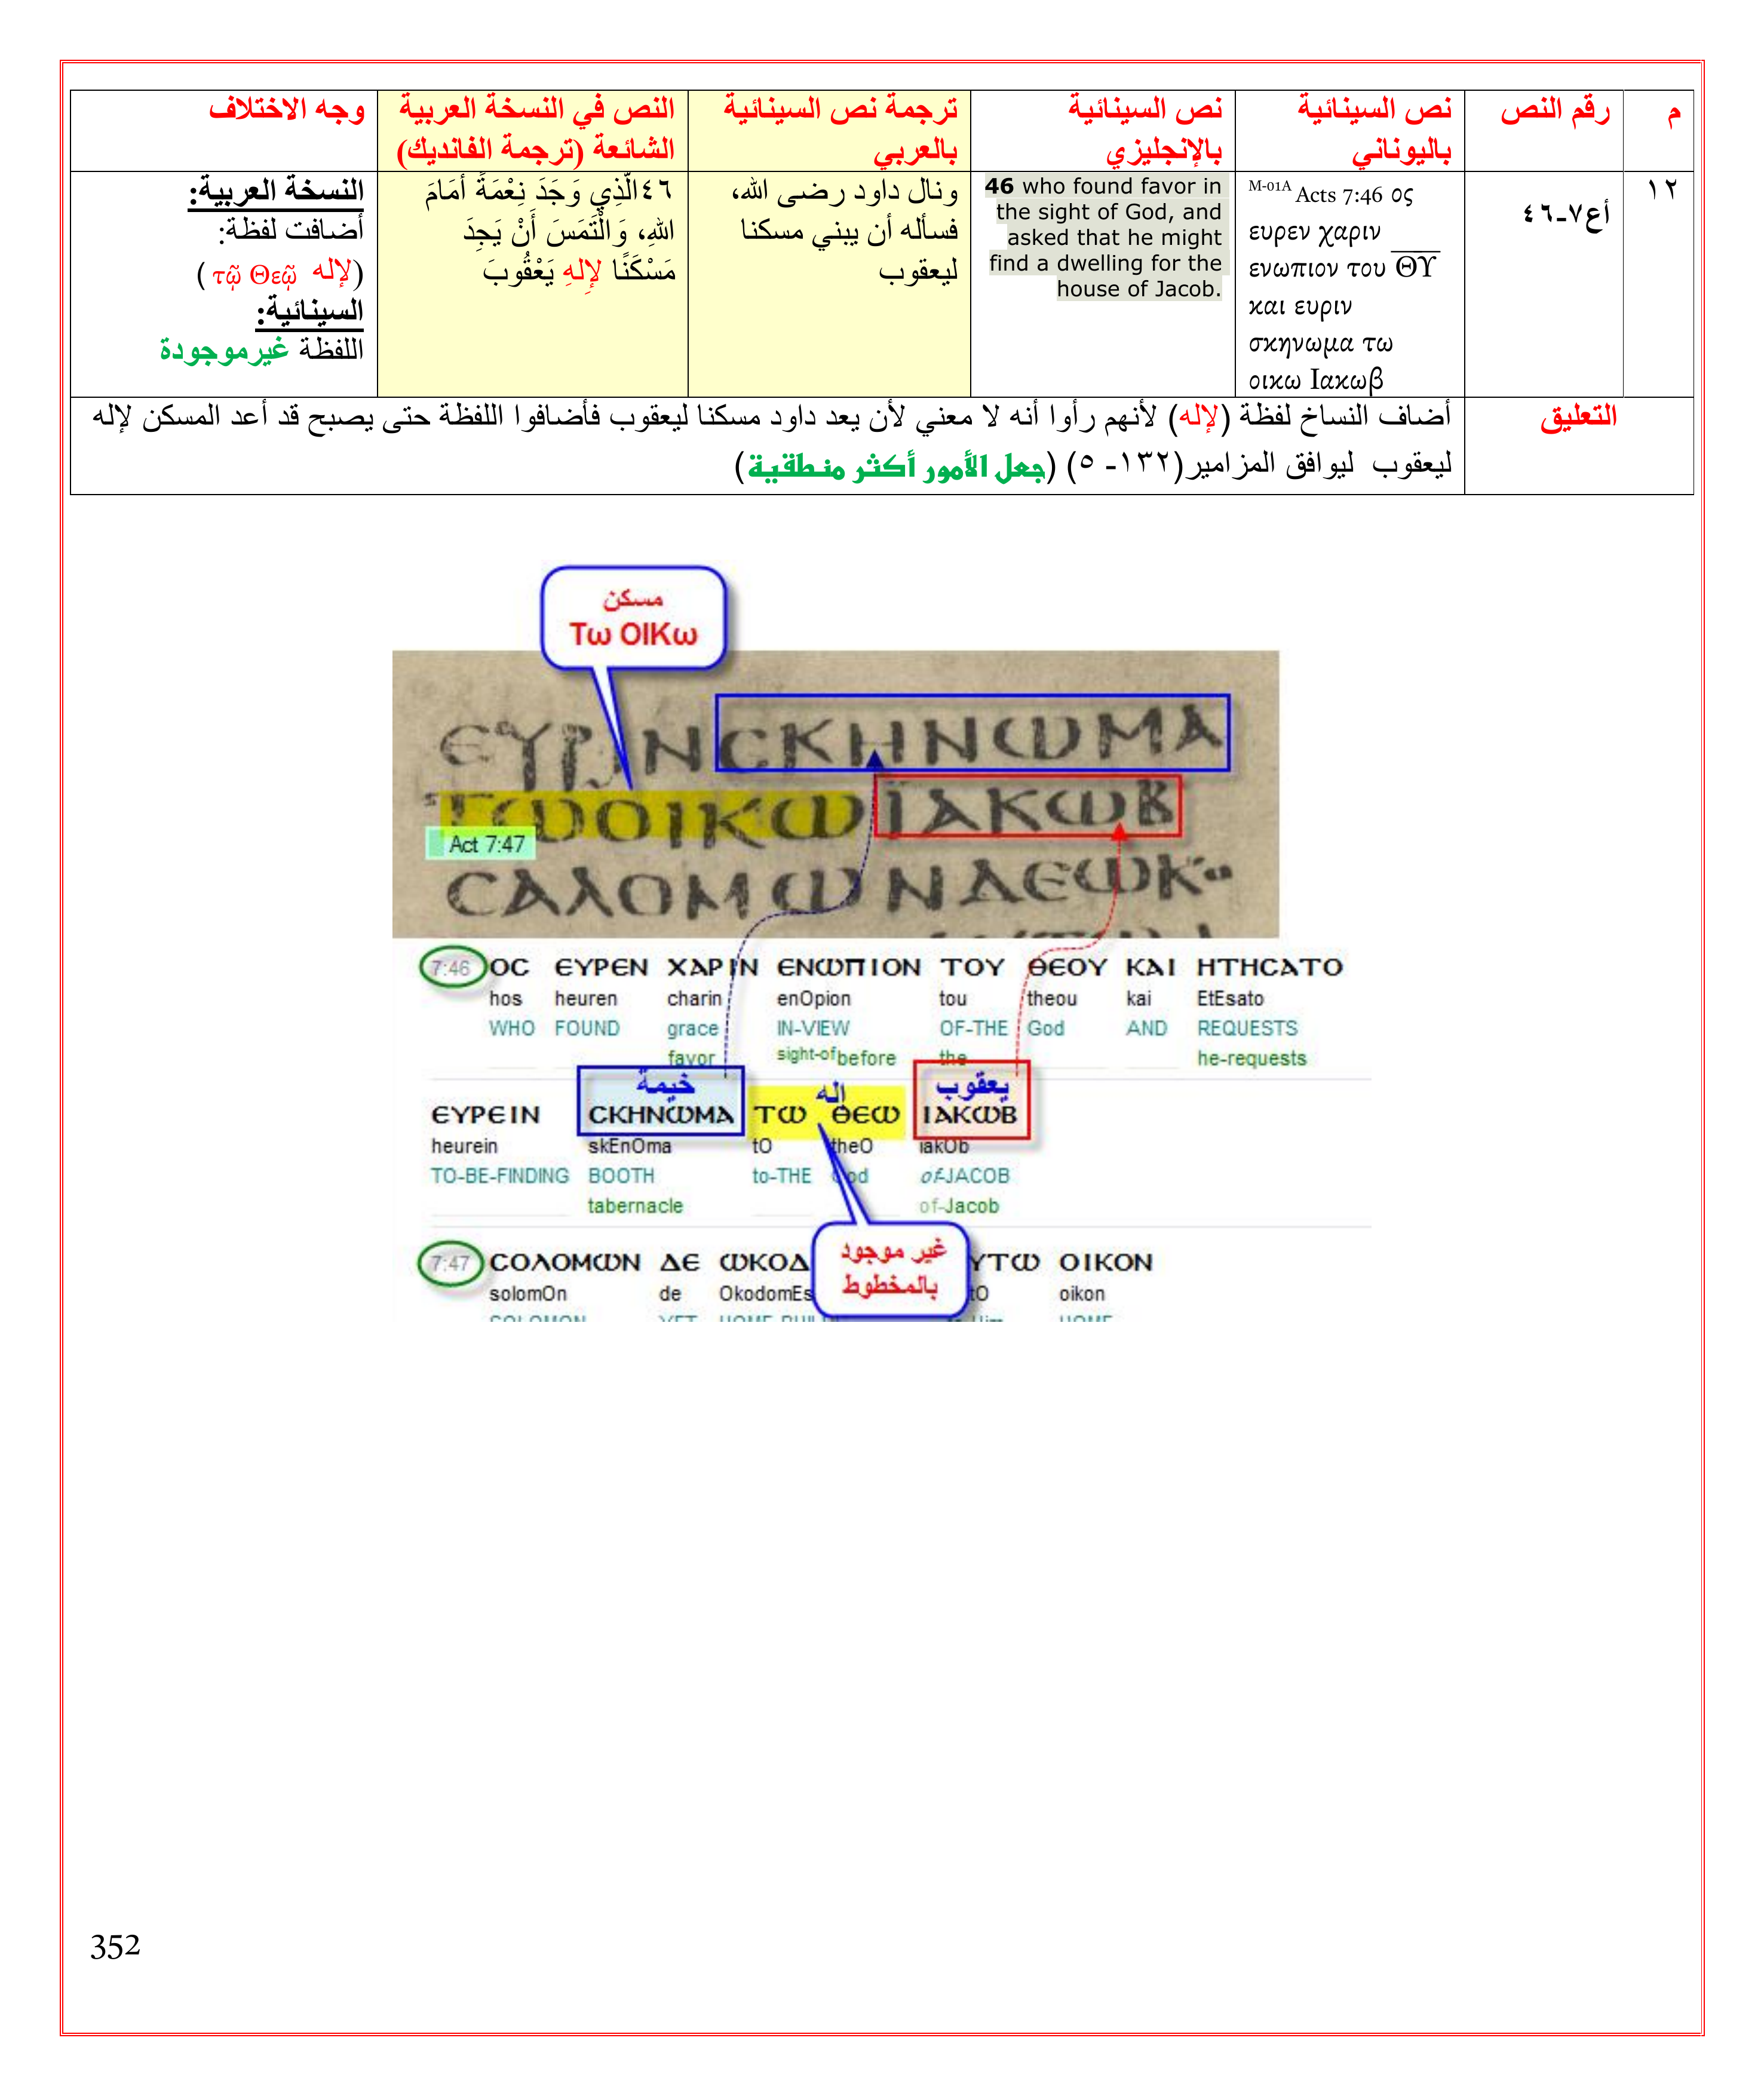 م
رقم النص
نص السينائية
باليوناني
نص السينائية
بالإنجليزي
ترجمة نص السينائية
بالعربي
النص في النسخة العربية
الشائعة (ترجمة الفانديك)
وجه الاختلاف
١٢
أع٧-٤٦
M-01A Acts 7:46 ος
ευρεν χαριν
ενωπιον του ΘΥ
και ευριν
σκηνωμα τω
οικω Ιακωβ
46 who found favor in
the sight of God, and
asked that he might
find a dwelling for the
house of Jacob.
ونال داود رضى الله،
فسأله أن يبني مسكنا
ليعقوب
٤٦الَّذِي وَجَدَ نِعْمَةً أَمَامَ
اللهِ، وَالْتَمَسَ أَنْ يَجِدَ
مَسْكَنًا لإِلهِ يَعْقُوبَ
النسخة العربية:
أضافت لفظة:
(لإله τῷ Θεῷ )
السينائية:
اللفظة غيرموجودة
التعليق
أضاف النساخ لفظة (لإله) لأنهم رأوا أنه لا معني لأن يعد داود مسكنا ليعقوب فأضافوا اللفظة حتى يصبح قد أعد المسكن لإله
ليعقوب ليوافق المزامير(١٣٢- ٥) (جعل الأمور أكثر منطقية)
مسكن
Τω ΟΙΚω
ΕΥΡΙΝCΚΗΝΩΜΑ
ΤΩΟΙΚΩΪΑΚΩΒ
Act 7:47
CΑΛΟΜΩΝΔΕΩΚ
7:46 ΟC ΕΥΡΕΝ ΧΑΡΙΝ ΕΝΩΠΙΟΝ ΤΟΥ ΘΕΟΥ ΚΑΙ ΗΤΗCΑΤΟ
hos heuren charin enOpion tou theou kai EtEsato
WHO FOUND grace IN-VIEW OF-THE God AND REQUESTS
favor sight-of before the he-requests
خيمة اله يعقوب
ΕΥΡΕΙΝ CΚΗΝΩΜΑ ΤΩ ΘΕΩ ΙΑΚΩΒ
heurein skEnOma tO theO iakOb
TO-BE-FINDING BOOTH to-THE God of-JACOB
tabernacle of-Jacob
غير موجود
بالمخطوط
7:47 CΟΛΟΜΩΝ ΔΕ ΩΚΟΔ ΥΤΩ ΟΙΚΟΝ
solomOn de OkodomEs tO oikon
352